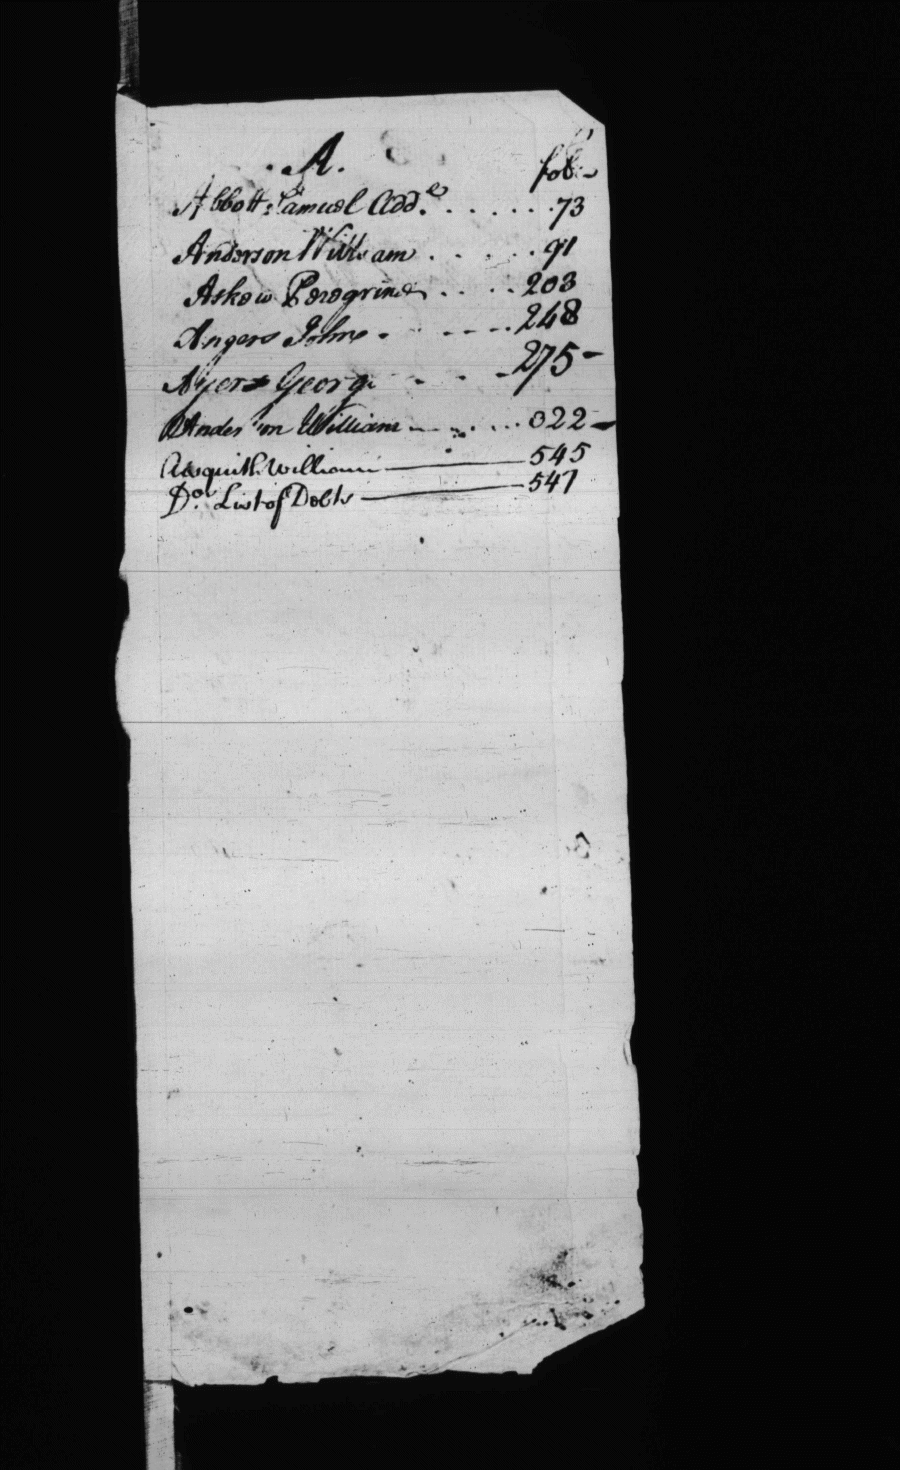 A.
fol:
Abbott Samuel Add.l 73
Anderson William 91
Askew Peregrine 203
Angers John 248
Ayers George 275
Anderson William 322
Asquith William 545
Do. List of Debts 547